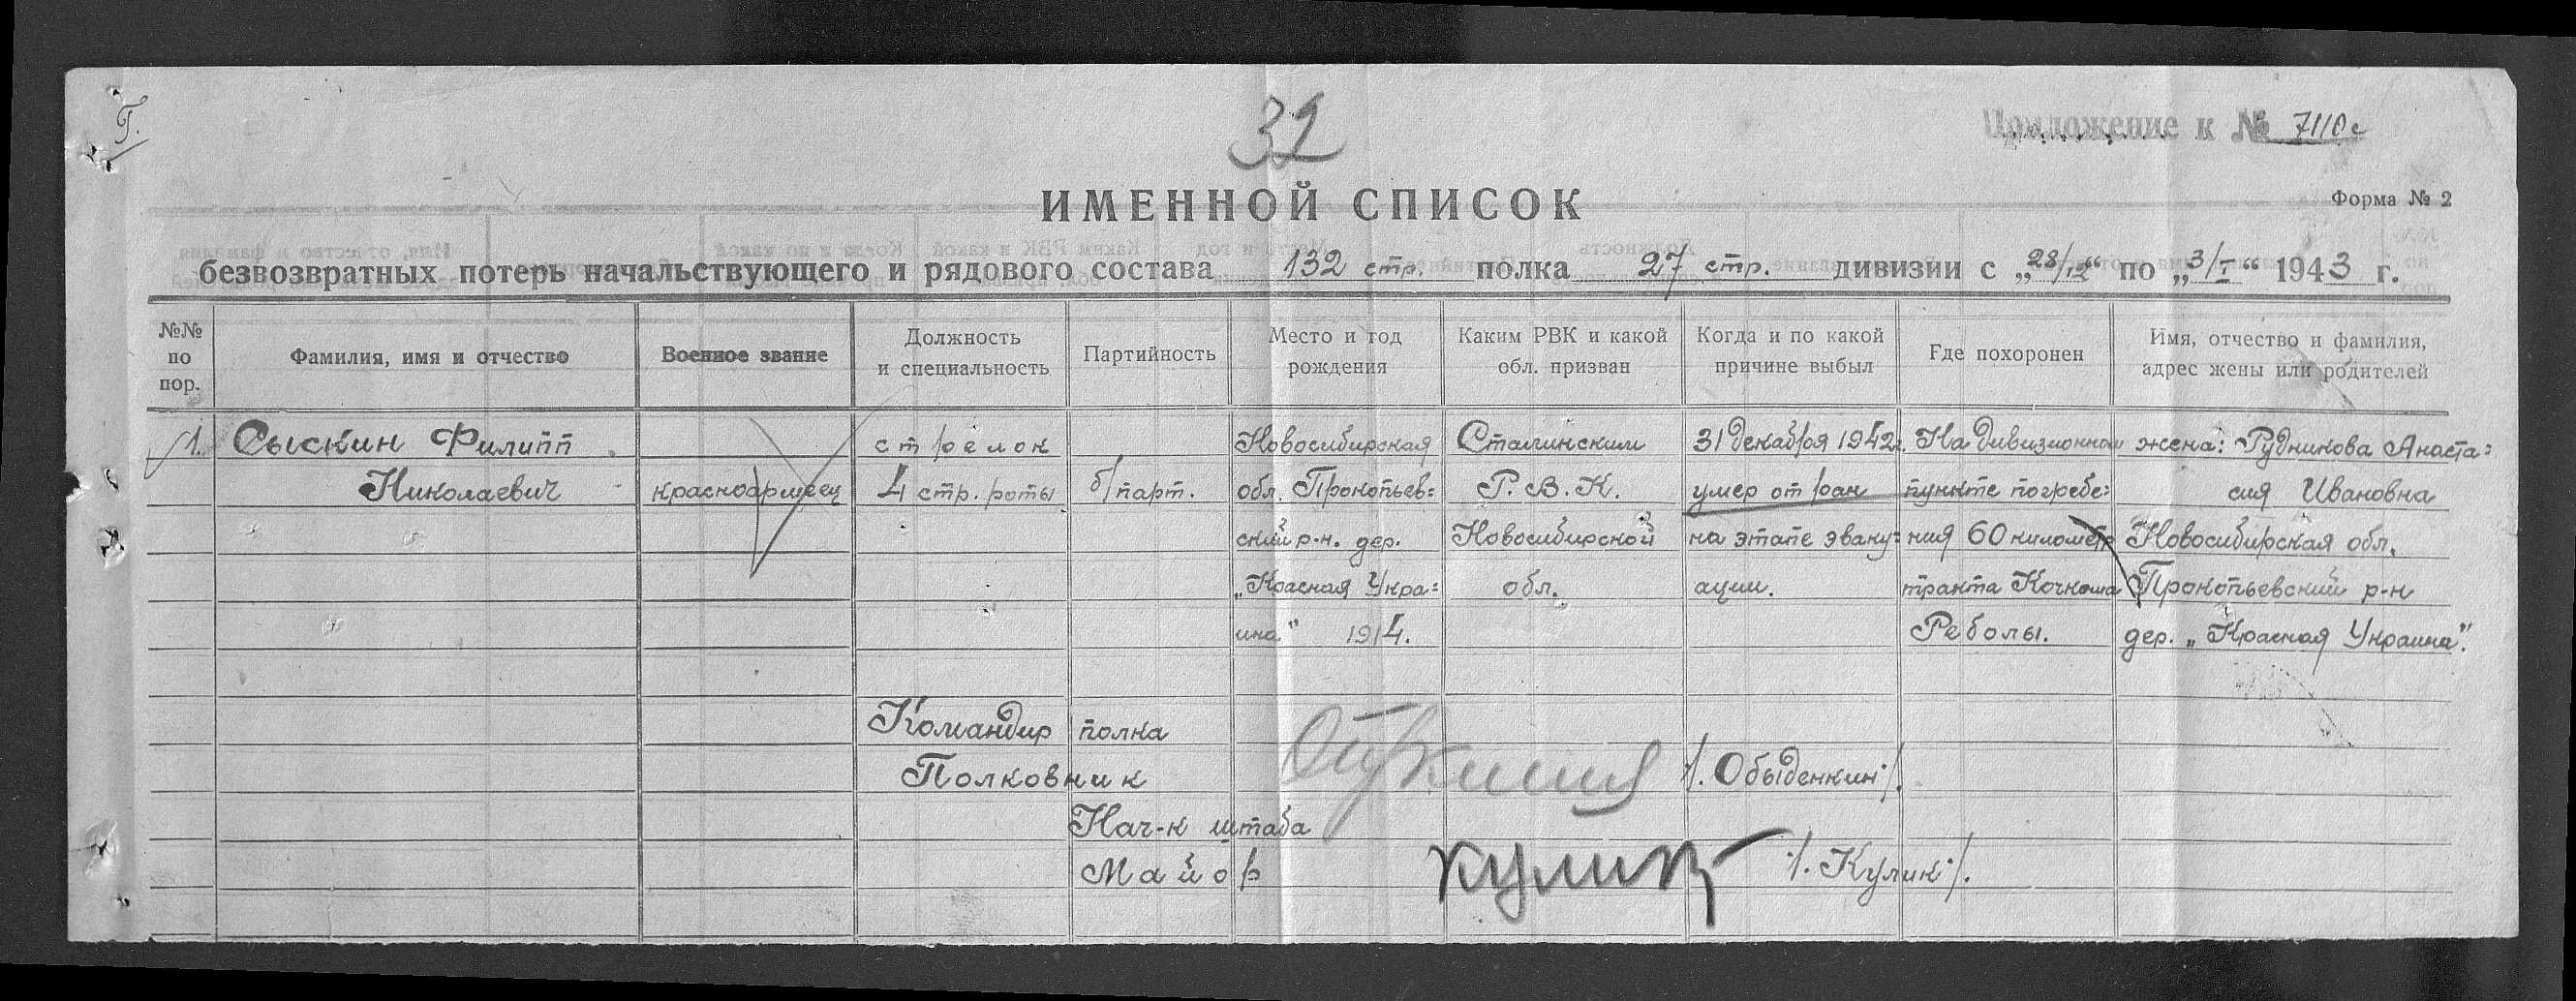 Г.
32
Приложение к № 7110с
ИМЕННОЙ СПИСОК
Форма № 2
безвозвратных потерь начальствующего и рядового состава 132 стр. полка 27 стр. дивизии с „28/12“ по „3/I“ 1943 г.
№№ по пор.
Фамилия, имя и отчество
Военное звание
Должность и специальность
Партийность
Место и год рождения
Каким РВК и какой обл. призван
Когда и по какой причине выбыл
Где похоронен
Имя, отчество и фамилия, адрес жены или родителей
1. Сыскин Филипп стрелок Новосибирская Сталинским 31 декабря 1942г. На дивизионном жена: Рудникова Анаста=
Николаевич красноармеец 4 стр. роты б/парт. обл. Прокопьев= Р.В.К. умер от ран пункте погребе= сия Ивановна
ский р-н. дер. Новосибирской на этапе эваку= ния 60 километр Новосибирская обл.
„Красная Укра= обл. ации. тракта Кочкома Прокопьевский р-н
ина" 1914. Реболы. дер. „Красная Украина".
Командир полка
Полковник /. Обыденкин /.
Нач-к штаба
Майор Кулик /. Кулик /.